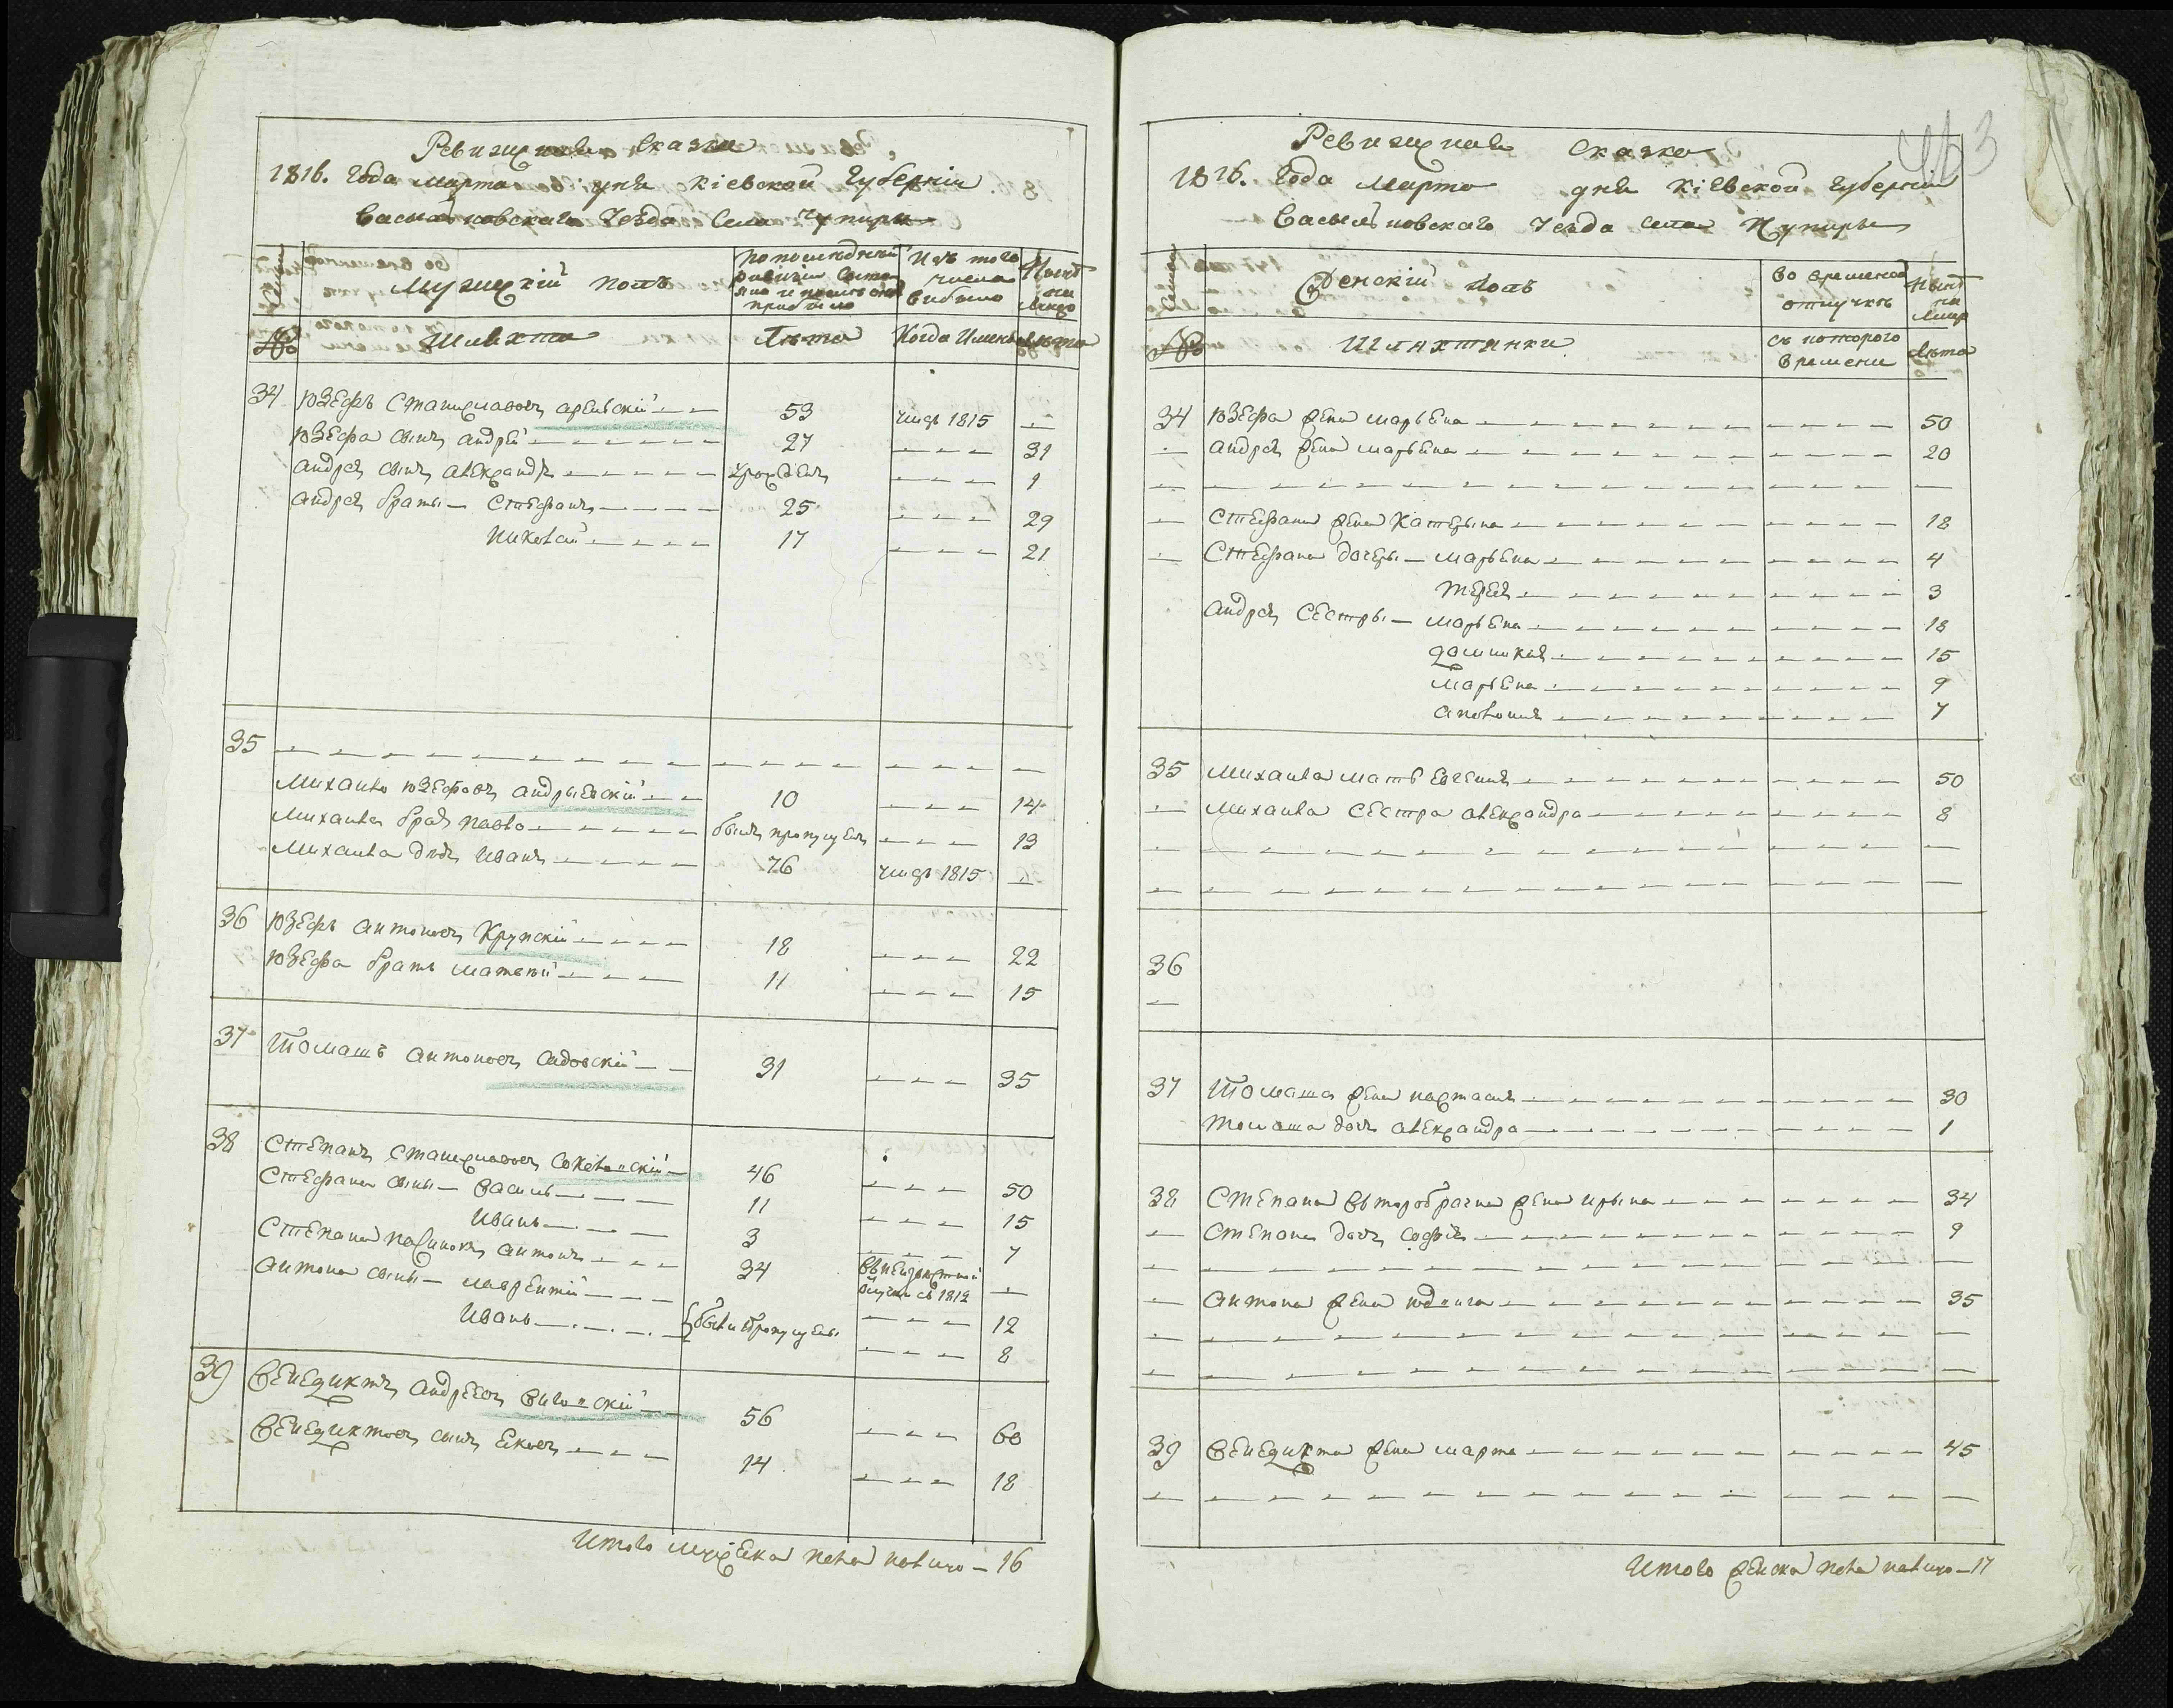 Ревизская сказка
1816. года марта дня Кіевской Губерніи
Васильковскаго Уезда села Чупиры
Семьи
Мужескій полъ
По последней ревизіи состояло и после оной прибыло
Изъ того числа выбыло
Ныне на лицо
№
Шляхта
Лета
Когда Именно
Лета
34 Юзефъ Станиславовъ 53 умеръ 1815 —
Юзефа сынъ Андрей 27 — 31
Андрея сынъ Александръ урожденъ — 1
Андрея братья — Стефанъ 25 — 29
Николай 17 — 21
35 —
Михайло Юзефовъ Андрыевскій 10 — 14
Михайла братъ Павло былъ пропущенъ — 13
Михайла дедъ Иванъ 76 умеръ 1815 —
36 Юзефъ Антоновъ Крупскій 18 — 22
Юзефа братъ Матвей 11 — 15
37 Томашъ Антоновъ Садовскій 31 — 35
38 Степанъ Станиславовъ Соколовскій 46 — 50
Стефана сыны — Василь 11 — 15
Иванъ 3 — 7
Степана пасынокъ Антонъ 34 въ неизвестной отлучке съ 1812 —
Антона сыны — Лаврентій — 12
Иванъ были пропущены — 8
39 Венедиктъ Андреевъ 56 — 60
Венедиктовъ сынъ Яковъ 14 — 18
Итого мужеска пола налицо — 16
463
Ревизская сказка
1816. Года Марта дня Кіевской Губерніи
Васильковскаго Уезда села Чупиры
Семьи
Женскій полъ
Во временной отлучке
Ныне на лицо
№
Шляхтянки
съ которого времени
Лета
34 Юзефа жена Марьяна — 50
— Андрея жена Марьяна — 20
— — —
— Стефана жена Катерына — 18
— Стефана дочеры — Марьяна — 4
Тереся — 3
Андрея сестры — Марьяна — 18
Доминика — 15
Марьяна — 9
Аполонія — 7
35 Михайла мать Евгенія — 50
— Михайла сестра Александра — 8
— — —
— — —
36
—
37 Томаша жена Настасія — 30
Томаша дочь Александра — 1
38 Степана второбрачна жена Ирына — 34
— Степана дочь Софія — 9
— — —
— Антона жена Юдвига — 35
— — —
— — —
39 Венедикта жена Марта — 45
— — —
Итого женска пола налицо — 17